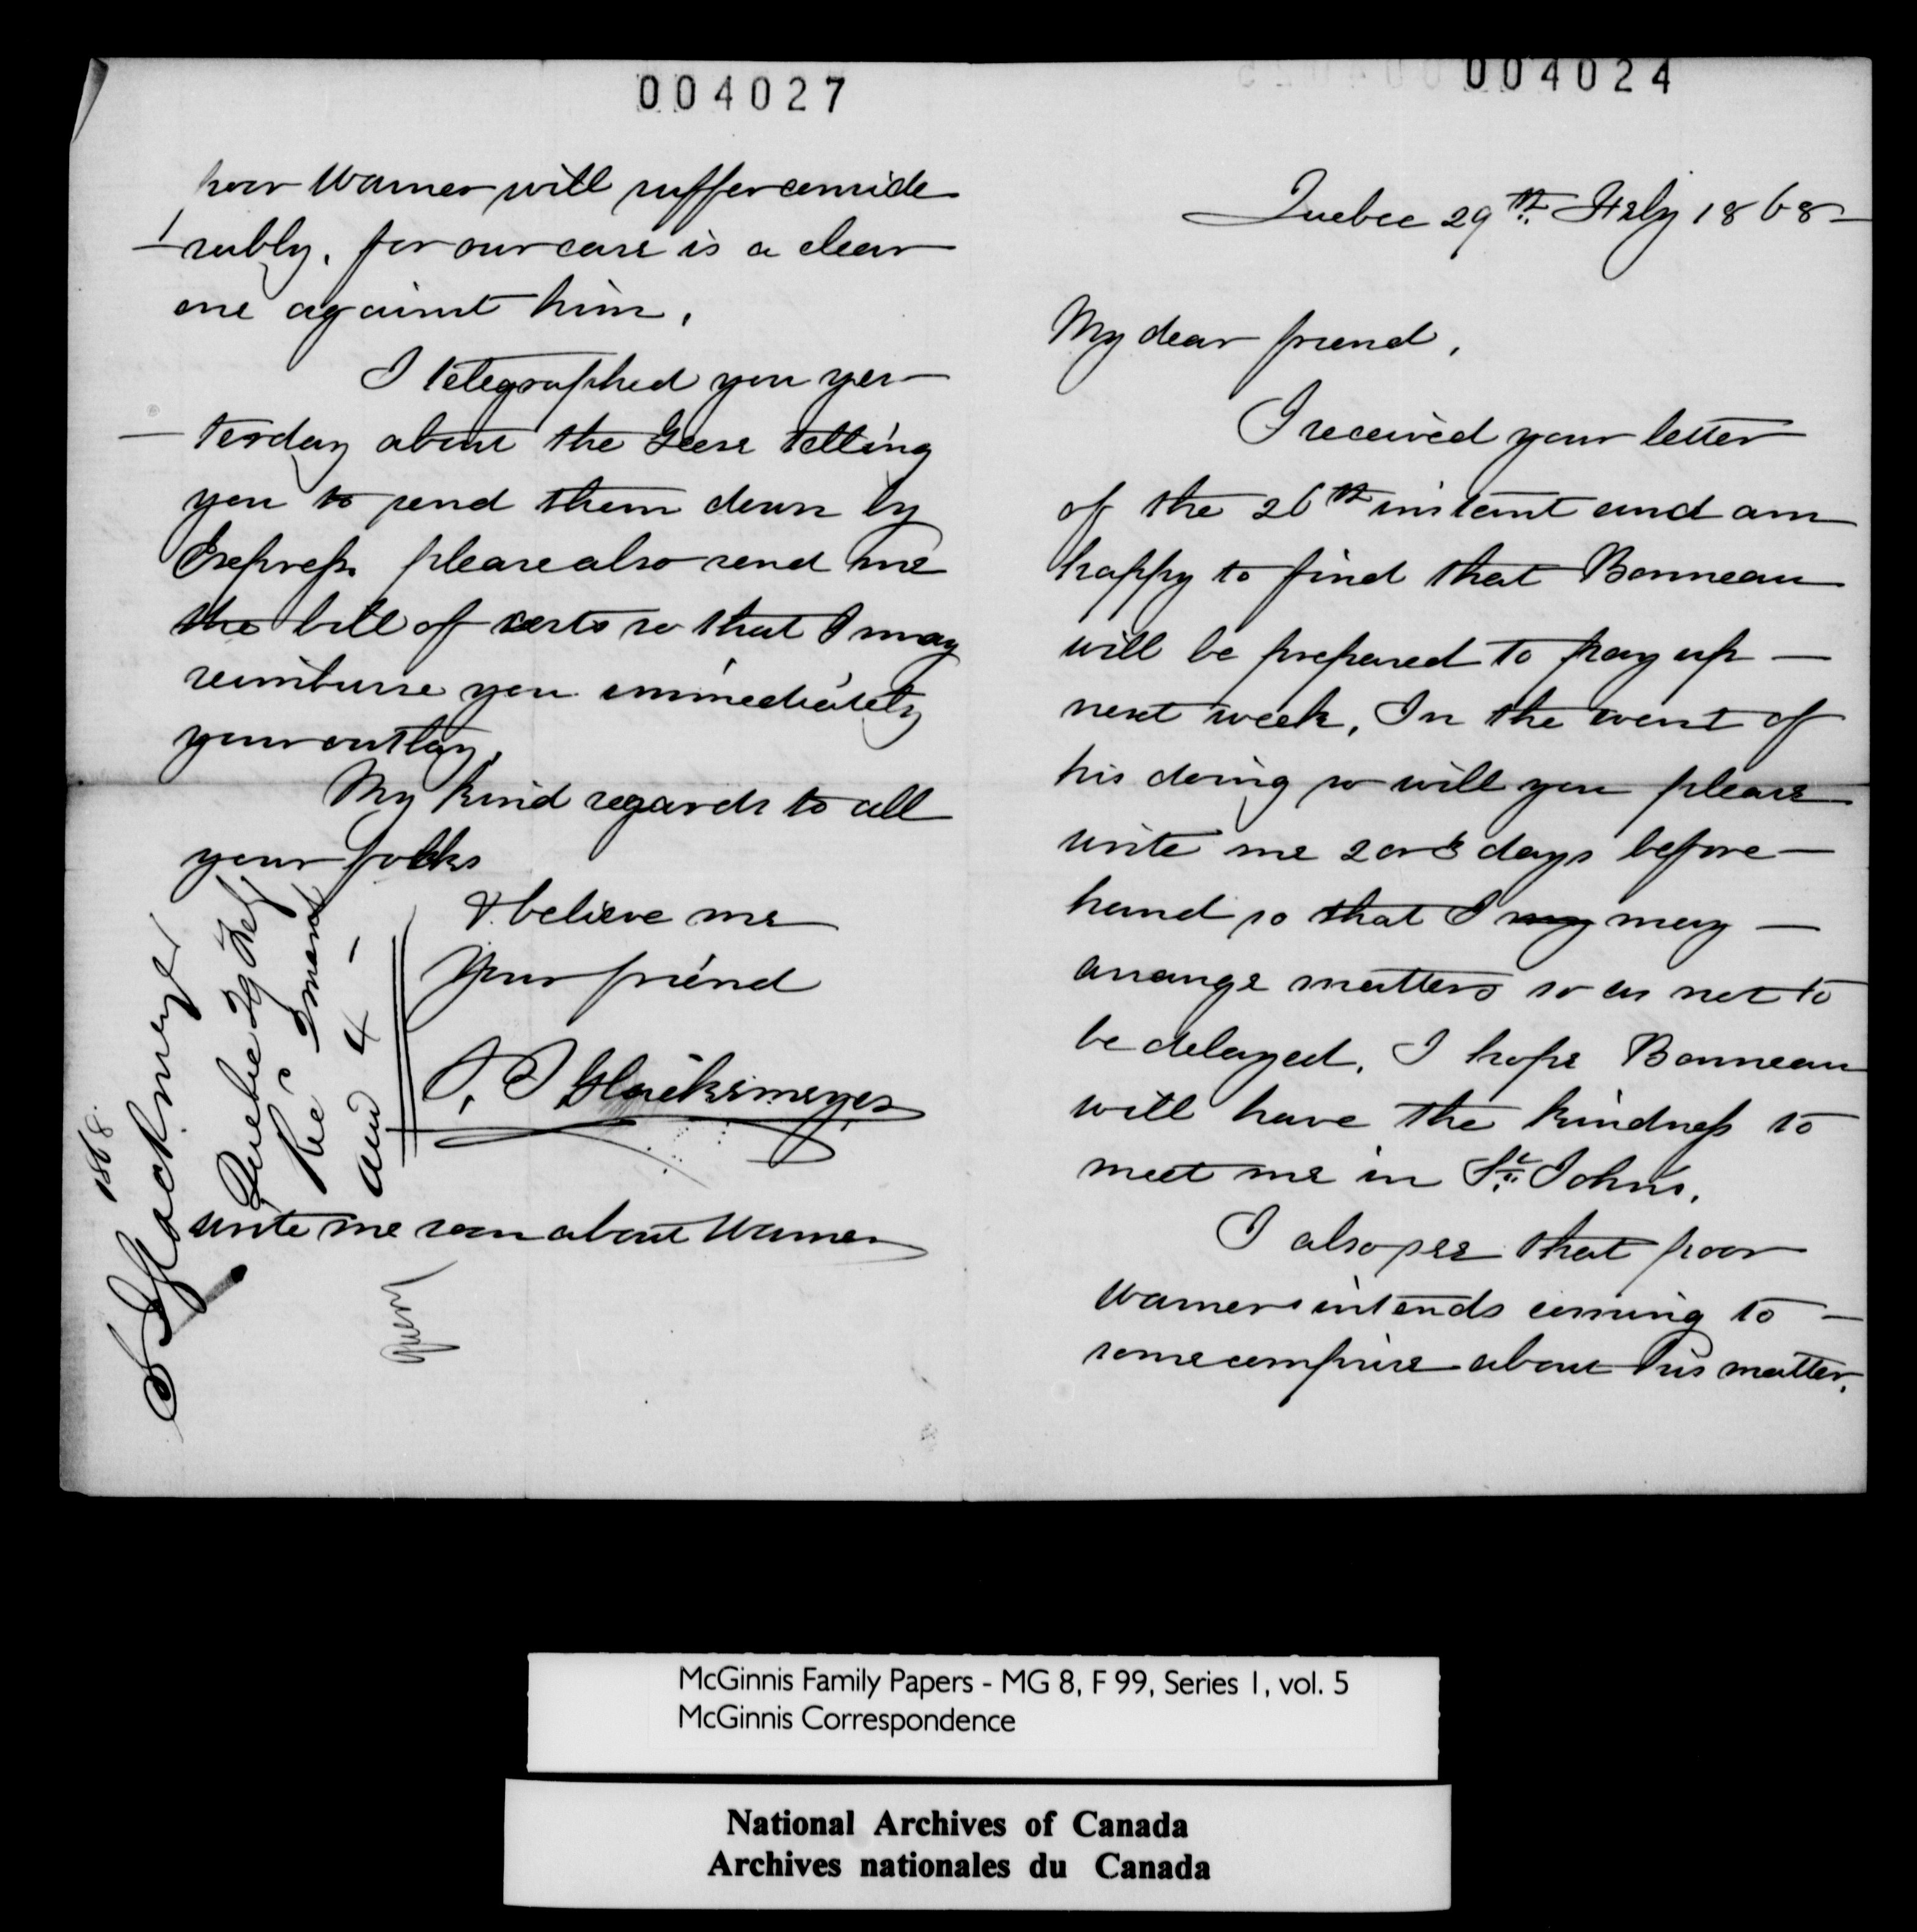 004024
Quebec 29th. Feby 1868
My dear friend,
I received your letter
of the 26th instant and am
happy to find that Bonneau
will be prepared to pay up —
next week, In the event of
his doing so will you please
write me 2 or 3 days before —
hand so that I may may —
arrange matters so as not to
be delayed. I hope Bonneau
will have the kindness to
meet me in St. Johns.
I also see that poor
Warner intends coming to —
some comprise about his matter.
004027
poor Warner will suffer conside
rably, for our case is a clear
one against him,
I telegraphed you yes —
— terday about the Geese telling
you to send them down by
Express. please also send me
the bill of costs so that I may
reimburse you immediately
your outlay.
My kind regards to all
your folks
& believe me
Your friend
Glackemeyer
write me soon about Warner
1868.
Glackmeyer
Quebec 29 Feby
Rec 2 March
and 4 —
McGinnis Family Papers - MG 8, F 99, Series 1, vol. 5
McGinnis Correspondence
National Archives of Canada
Archives nationales du Canada